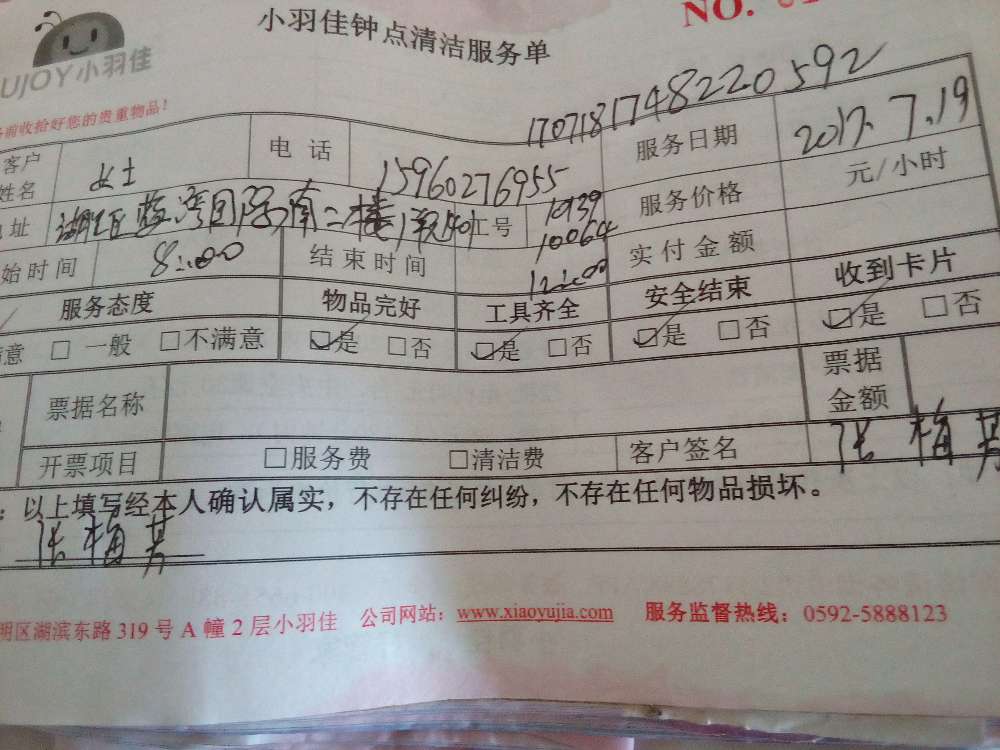 NO.
小羽佳钟点清洁服务单
UJOY小羽佳
前收拾好您的贵重物品!
170718174822 0592
客户姓名 女士 电话 15960276955 服务日期 2017.7.19
址 湖区 湾国际南二楼 工号 10739 10064 服务价格 元/小时
始时间 8:00 结束时间 12:00 实付金额
服务态度 物品完好 工具齐全 安全结束 收到卡片
意 □ 一般 □不满意 ☑是 □否 ☑是 □否 ☑是 □否 ☑是 □否
票据名称 票据金额
开票项目 □服务费 □清洁费 客户签名 张梅
: 以上填写经本人确认属实，不存在任何纠纷，不存在任何物品损坏。
张梅
明区湖滨东路 319 号 A 幢 2 层小羽佳 公司网站: www.xiaoyujia.com 服务监督热线: 0592-5888123